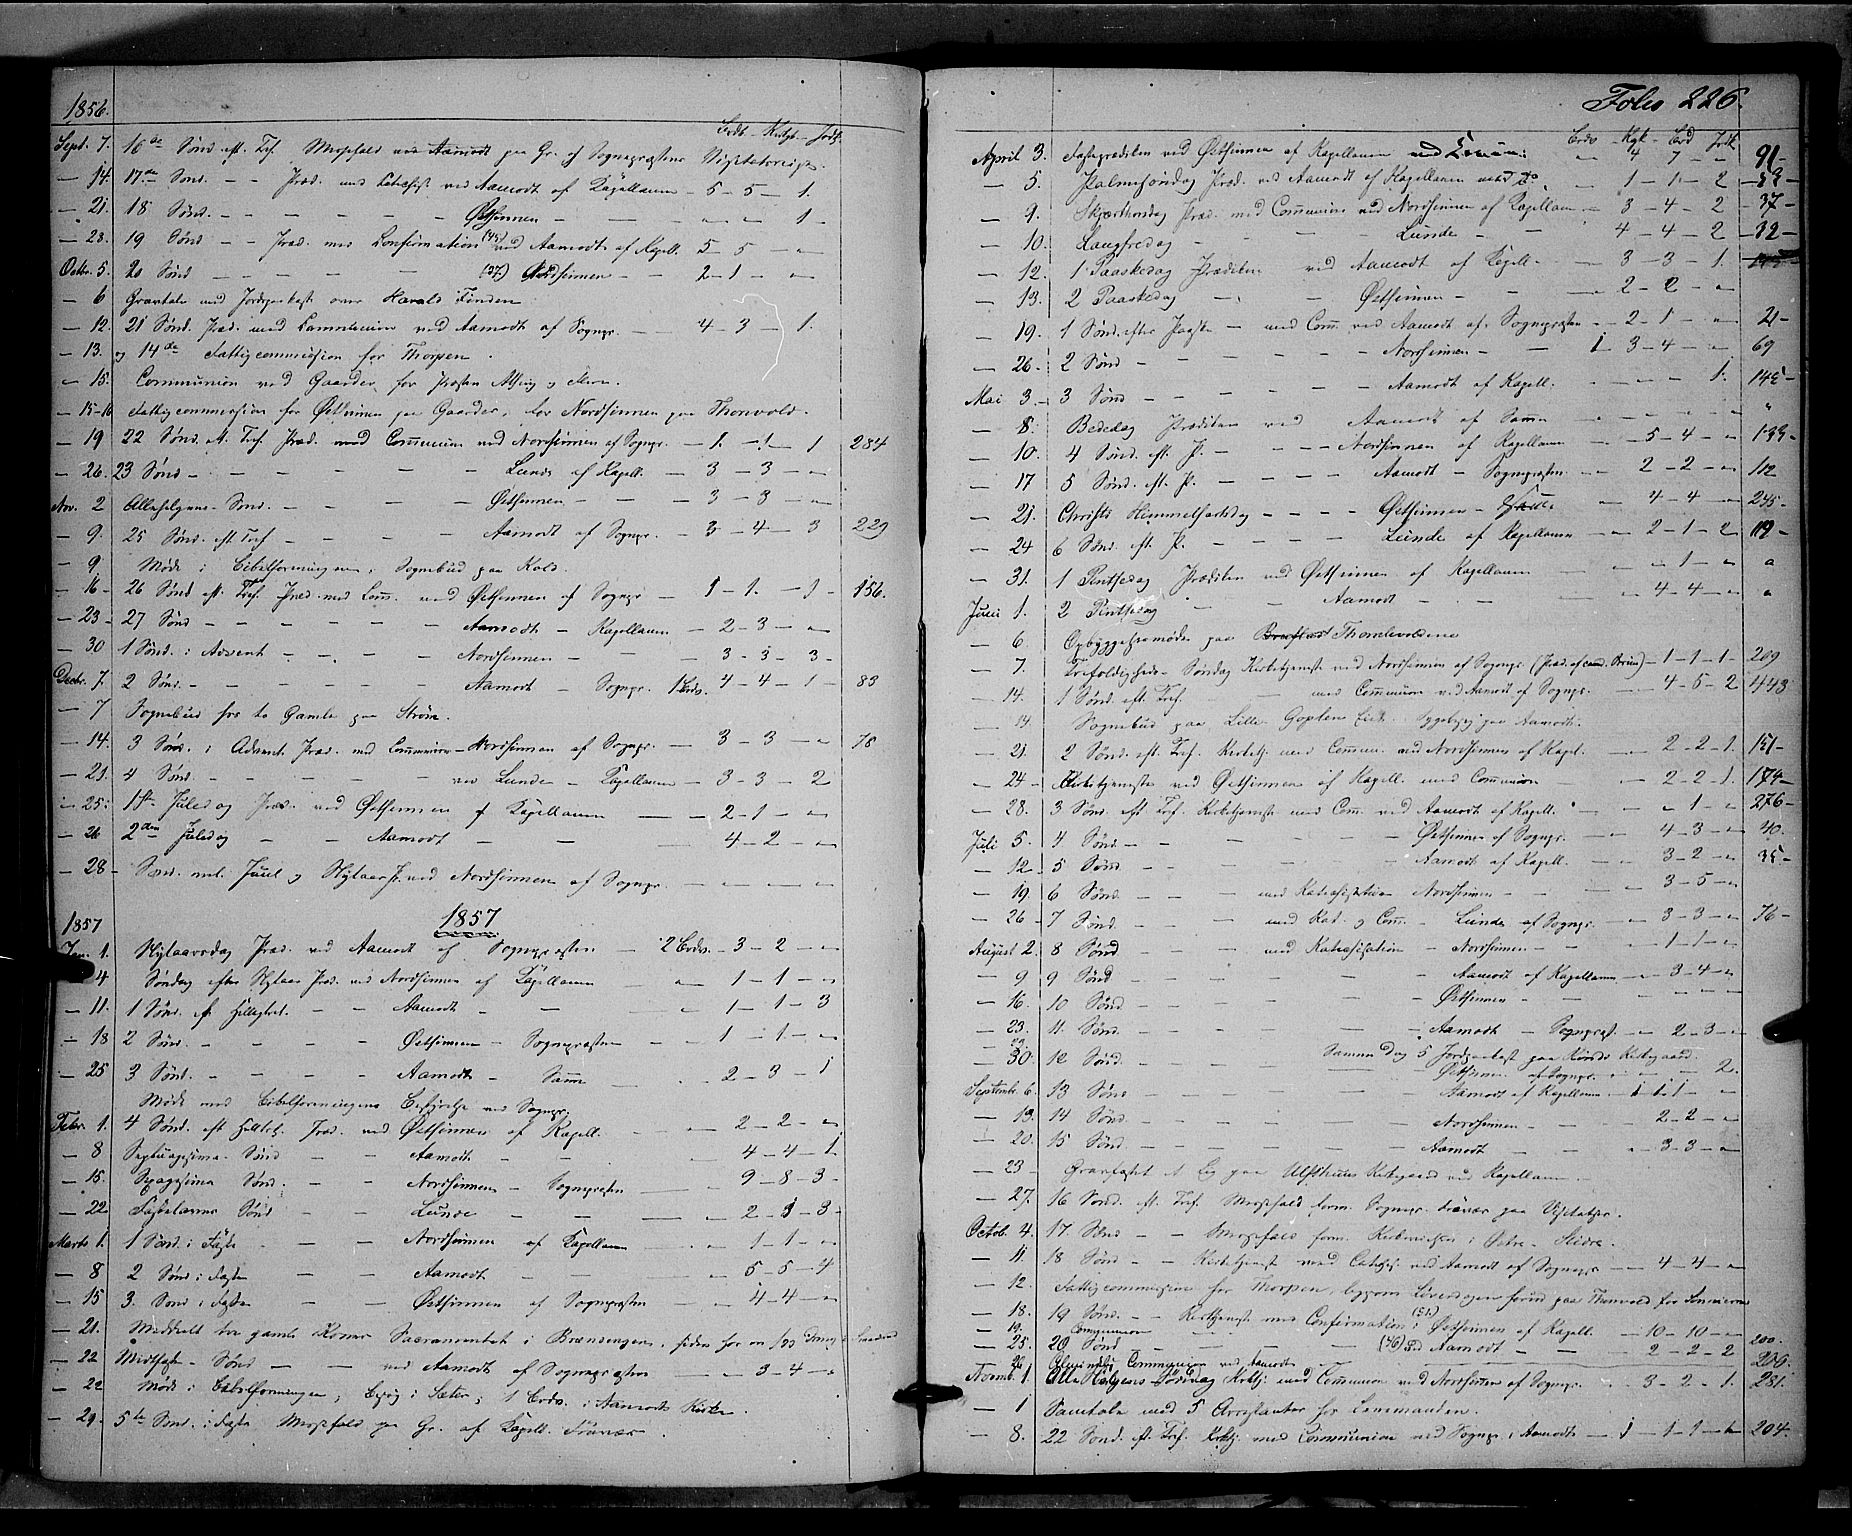 1856.
Brdv. Kirkg. Jordf.
Sept. 7. 16de Sønd. eft. Tref. Messefald ved Aamodt paa Gr. af Sognepræstens Visitatsreise.
— 14. 17de Sønd. — — Præd. med Catechis. ved Aamodt af Kapellanen — 5 — 5 — 1.
— 21. 18 Sønd. — — — — — Østsinnen — — — 1 —
— 28. 19 Sønd — — Præd. med Confirmation (45) ved Aamodt af Kapell. 5 — 5 — „
Octbr. 5. 20 Sønd — — — — — (37) Nordsinnen — — 2 — 1 — „
— 6 Gravtale med Jordpaakast over Harald Finden
— 12. 21 Sønd. Præd. med Communion ved Aamodt af Sognpr. — 4 — 3 — 1.
— 13. og 14de Fattigcommission for Thorpen.
— 15. Communion ved Gaarder for Præsten
— 15-16 Fattigcommission for Østsinnen paa Gaarder, for Nordsinnen paa Thonvold.
— 19 22 Sønd. eft. Tref. Præd. med Communion ved Nordsinnen af Sognpr. — 1 — 1 — 1 284
— 26. 23 Sønd — — — — — Lunde af Kapell. — 3 — 3 — „
Nov. 2 Allehelgens-Sønd. — — — — Østsinnen — — 3 — 3 — „
— 9. 25 Sønd. eft. Tref — — — — Aamodt af Sognpr. — 3 — 4 — 3 229
— 9 Møde i Bibelforeningen, Sognebud paa Kold.
— 16 — 26 Sønd eft. Tref. Præd. med Com. ved Østsinnen af Sognpr. — 1 — 1. — 1 — 156.
— 23 — 27 Sønd — — — — — Aamodt — Kapellanen — 2 — 3 — „
— 30 1 Sønd. i Advent — — — — Nordsinnen — — 3 — 3 — 3 —
Decbr. 7. 2 Sønd. — — — — — Aamodt — Sognpr. 1 Brdv. 4 — 4 — 1 — 83
— 7 Sognebud hos to Gamle paa Strøm.
— 14. 3 Sønd. i Advent. Præd. med Communion — Nordsinnen af Sognpr. — 3 — 3 — „ 78
— 21. 4 Sønd. — — — — — ved Lunde — Kapellanen — 3 — 3 — 2
— 25: 1ste Juledag Præd. ved Østsinnen af Kapellanen — — 2 — 1 — „
— 26 2den Juledag — — Aamodt — — 4 — 2 — „
— 28 — Sønd. mel. Juul og Nytaar Pr. ved Nordsinnen af Sognpr. — — — —
1857 1857
Jan. 1. Nytaarsdag Præd. ved Aamodt af Sognepræsten — 2 Brdv. — 3 — 2 — „
4 Søndag efter Nytaar Præd. ved Nordsinnen af Kapellanen — „ — 1 — 1 — „
— 11. 1 Sønd. eft. Helligtrek. — — Aamodt — — „ — 1 — 1 — 3
— 18 2 Sønd. — — — — Østsinnen — Sognepræsten — 1 — 1 — „
— 25 3 Sønd. — — — — Aamodt — Samme — „ — 2 — 3 — 1
Møde med Bibelforeningens Bestyrelse ved Sognpr.
Febr. 1. 4 Sønd. eft Helltrk. Præd. ved Østsinnen af Kapell. — „ — 2 — 2 — „
— 8 Septuagesima-Sønd — — Aamodt — — „ 4 — 4 — 1.
— 15. Sexagesima Sønd. — — Nordsinnen — Sognepræsten — „ 9 — 8 — 3 —
— 22 Fastelavns Sønd — — Lunde — — „ — 2 — 3 — 3 —
Marts 1. 1 Sønd. i Faste — — Nordsinnen af Kapellanen — „ — 1 — 1 — „
— 8 2 Sønd. i Fasten — — Aamodt — — „ 5 — 5 — 4
— 15 3. Sønd i Fasten — — Østsinnen af Sognepræsten — „ 4 — 4 — „
— 21. Meddeelt tre gamle Koner Sacramentet i Brændengen, siden for en syg
— 22 Midfaste-Sønd — — ved Aamodt af Sognepræsten — „ — 3 — 4 — „
— 22 Møde i Bibelforeningen, 1 Brdv. i Aamodts Kirke.
— 29. 5te Sønd. i Faste Messefald paa Gr. af Kapell. Fravær.
Folio 226.
Brdv. Kgk — Brd Jrdk
April 3. Fasteprædiken ved Østsinnen af Kapellanen — „ 4 7 — „ 91 —
— 5. Palmesøndag Præd. ved Aamodt af Kapellanen — 1 — 1 — 2 — 53 —
— 9. Skjærthorsdag Præd. med Communion ved Nordsinnen af Kapellanen — 3 — 4 — 2 — 37 —
— 10. Langfredag — — — — Lunde — — 4 — 4 — 2 — 32 —
— 12. 1 Paaskedag Prædiken ved Aamodt af Kapell. — 3 — 3 — 1.
— 13. 2 Paaskedag — — Østsinnen — — 2 — 2 — „
— 19. 1 Sønd. efter Paaske — med Com. ved Aamodt af Sognepræsten — 2 — 1 — „ 21 —
— 26. 2 Sønd — — — — — Nordsinnen — — 1 — 3 — 4 — „ 69
Mai 3 — 3 Sønd — — — — — Aamodt af Kapell. — — — 1. 145 —
— 8. Bededag Prædiken ved Aamodt af Samme — — — — „
— 10. 4 Sønd. eft. P. — — — Nordsinnen af Kapellanen — 5 — 4 — „ 133 —
— 17 5 Sønd. eft. P. — — — — Aamodt — Sognepræsten — 2 — 2 — „ 112
— 21. Christi Himmelfartsdag — — — — Østsinnen — — 4 — 4 — „ 245 —
— 24 6 Sønd. eft. P. — — — — Lunde af Kapellanen — 2 — 1 — 2 119 —
— 31. 1 Pintsedag Prædiken ved Østsinnen af Kapellanen — — 1 — „ „
Juni 1. 2 Pintsedag — — Aamodt — — 4 — 4 — „ „
— 6. Opbyggelsesmøde paa Thomlevoldene
— 7. Trefoldigheds-Søndag Kirketjeneste ved Nordsinnen af Sognpr. (Præd. af cand. ) — 1 — 1 — 1 — 209
— 14. 1 Sønd. eft. Tref. — — med Communion ved Aamodt af Sognpr. — 4 — 5 — 2 443
14. Sognebud paa Lille Goplen Eie. Sygebesøg paa Aamodt.
— 21 2 Sønd. eft. Tref. Kirketj. med Commun. ved Nordsinnen af Kapel. — 2 — 2 — 1. 151 —
— 24 — Kirketjeneste ved Østsinnen af Kapell. med Communion — 2 — 2 — 1. 174 —
— 28. 3 Sønd. eft. Tref. Kirketjeneste med Com. ved Aamodt af Kapell. — „ — 1 — „ 276 —
Juli 5. 4 Sønd. — — — — Østsinnen af Sognpr. — 4 — 3 — „ 40.
— 12 — 5 Sønd — — — — Aamodt af Kapell. — 3 — 2 — „ 35 —
— 19. 6 Sønd. — — med Katechisation Nordsinnen — — 3 — 5 — „
— 26 — 7 Sønd. — — med Kat. og Com. — Lunde af Sognpr. — 3 — 3 — „ 76 —
August 2. 8 Sønd. — — med Katechisation — Nordsinnen — — 1 — 1 — „
— 9 9 Sønd — — — — Aamodt af Kapellanen — 3 — 4 — „
— 16. 10 Sønd. — — — — Østsinnen — —
— 23. 11. Sønd. — — — — Aamodt — Sognepræst. — 2 — 3 — „
— 30. 12 Sønd. — — Samme Dag 5 Jordpaakast paa Kirkegaard.
Østsinnen af Sognpr. — — 2.
Septembr. 6. 13 Sønd — — — — Aamodt af Kapellanen — 1 — 1 — 1 — „
— 13. 14 Sønd. — — — — Nordsinnen — — 2 — 2 — „
— 20. 15 Sønd — — — — Aamodt — — 3 — 3 — „
— 23 — Gravfæstet 1 Lig paa Kirkegaard ved Kapellanen. —
— 27. 16 Sønd. eft. Tref. Messefald form. Sognepr. Fravær paa Visitatser.
Octob. 4. 17. Sønd — — Messefald form. Kirkevielsen i Vestre-Slidre.
— 11 18 Sønd — — Kirketjenest med Catechis. ved Aamodt af Sognepr. — 4 — 4 — „
— 12. Fattigcommission for Thorpen, ligesom Løverdagen forud paa Thonvold for Sinnerne
— 18. 19 Sønd. — — Kirketjenest med Confirmation (51.) i Østsinnen af Kapell. — 10 — 10 — „
— 19. Communion — — 200.
— 25. 20 Sønd — — — — (46) ved Aamodt — — 2 — 2 — 2
26 Almindelig Communion ved Aamodt — 206.
Novemb. 1 Alle Helgens-Søndag Kirktj. med Communion ved Nordsinnen af Sognpr. — 3 — 2 — 1. 281.
— 1 Samtale med 5 Arrestanter hos Lensmanden.
— 8. 22 Sønd. eft. Tref. Kirktj. med Communion ved Sognpr. i Aamodt — 1 — 1 — 1 — „ 204.